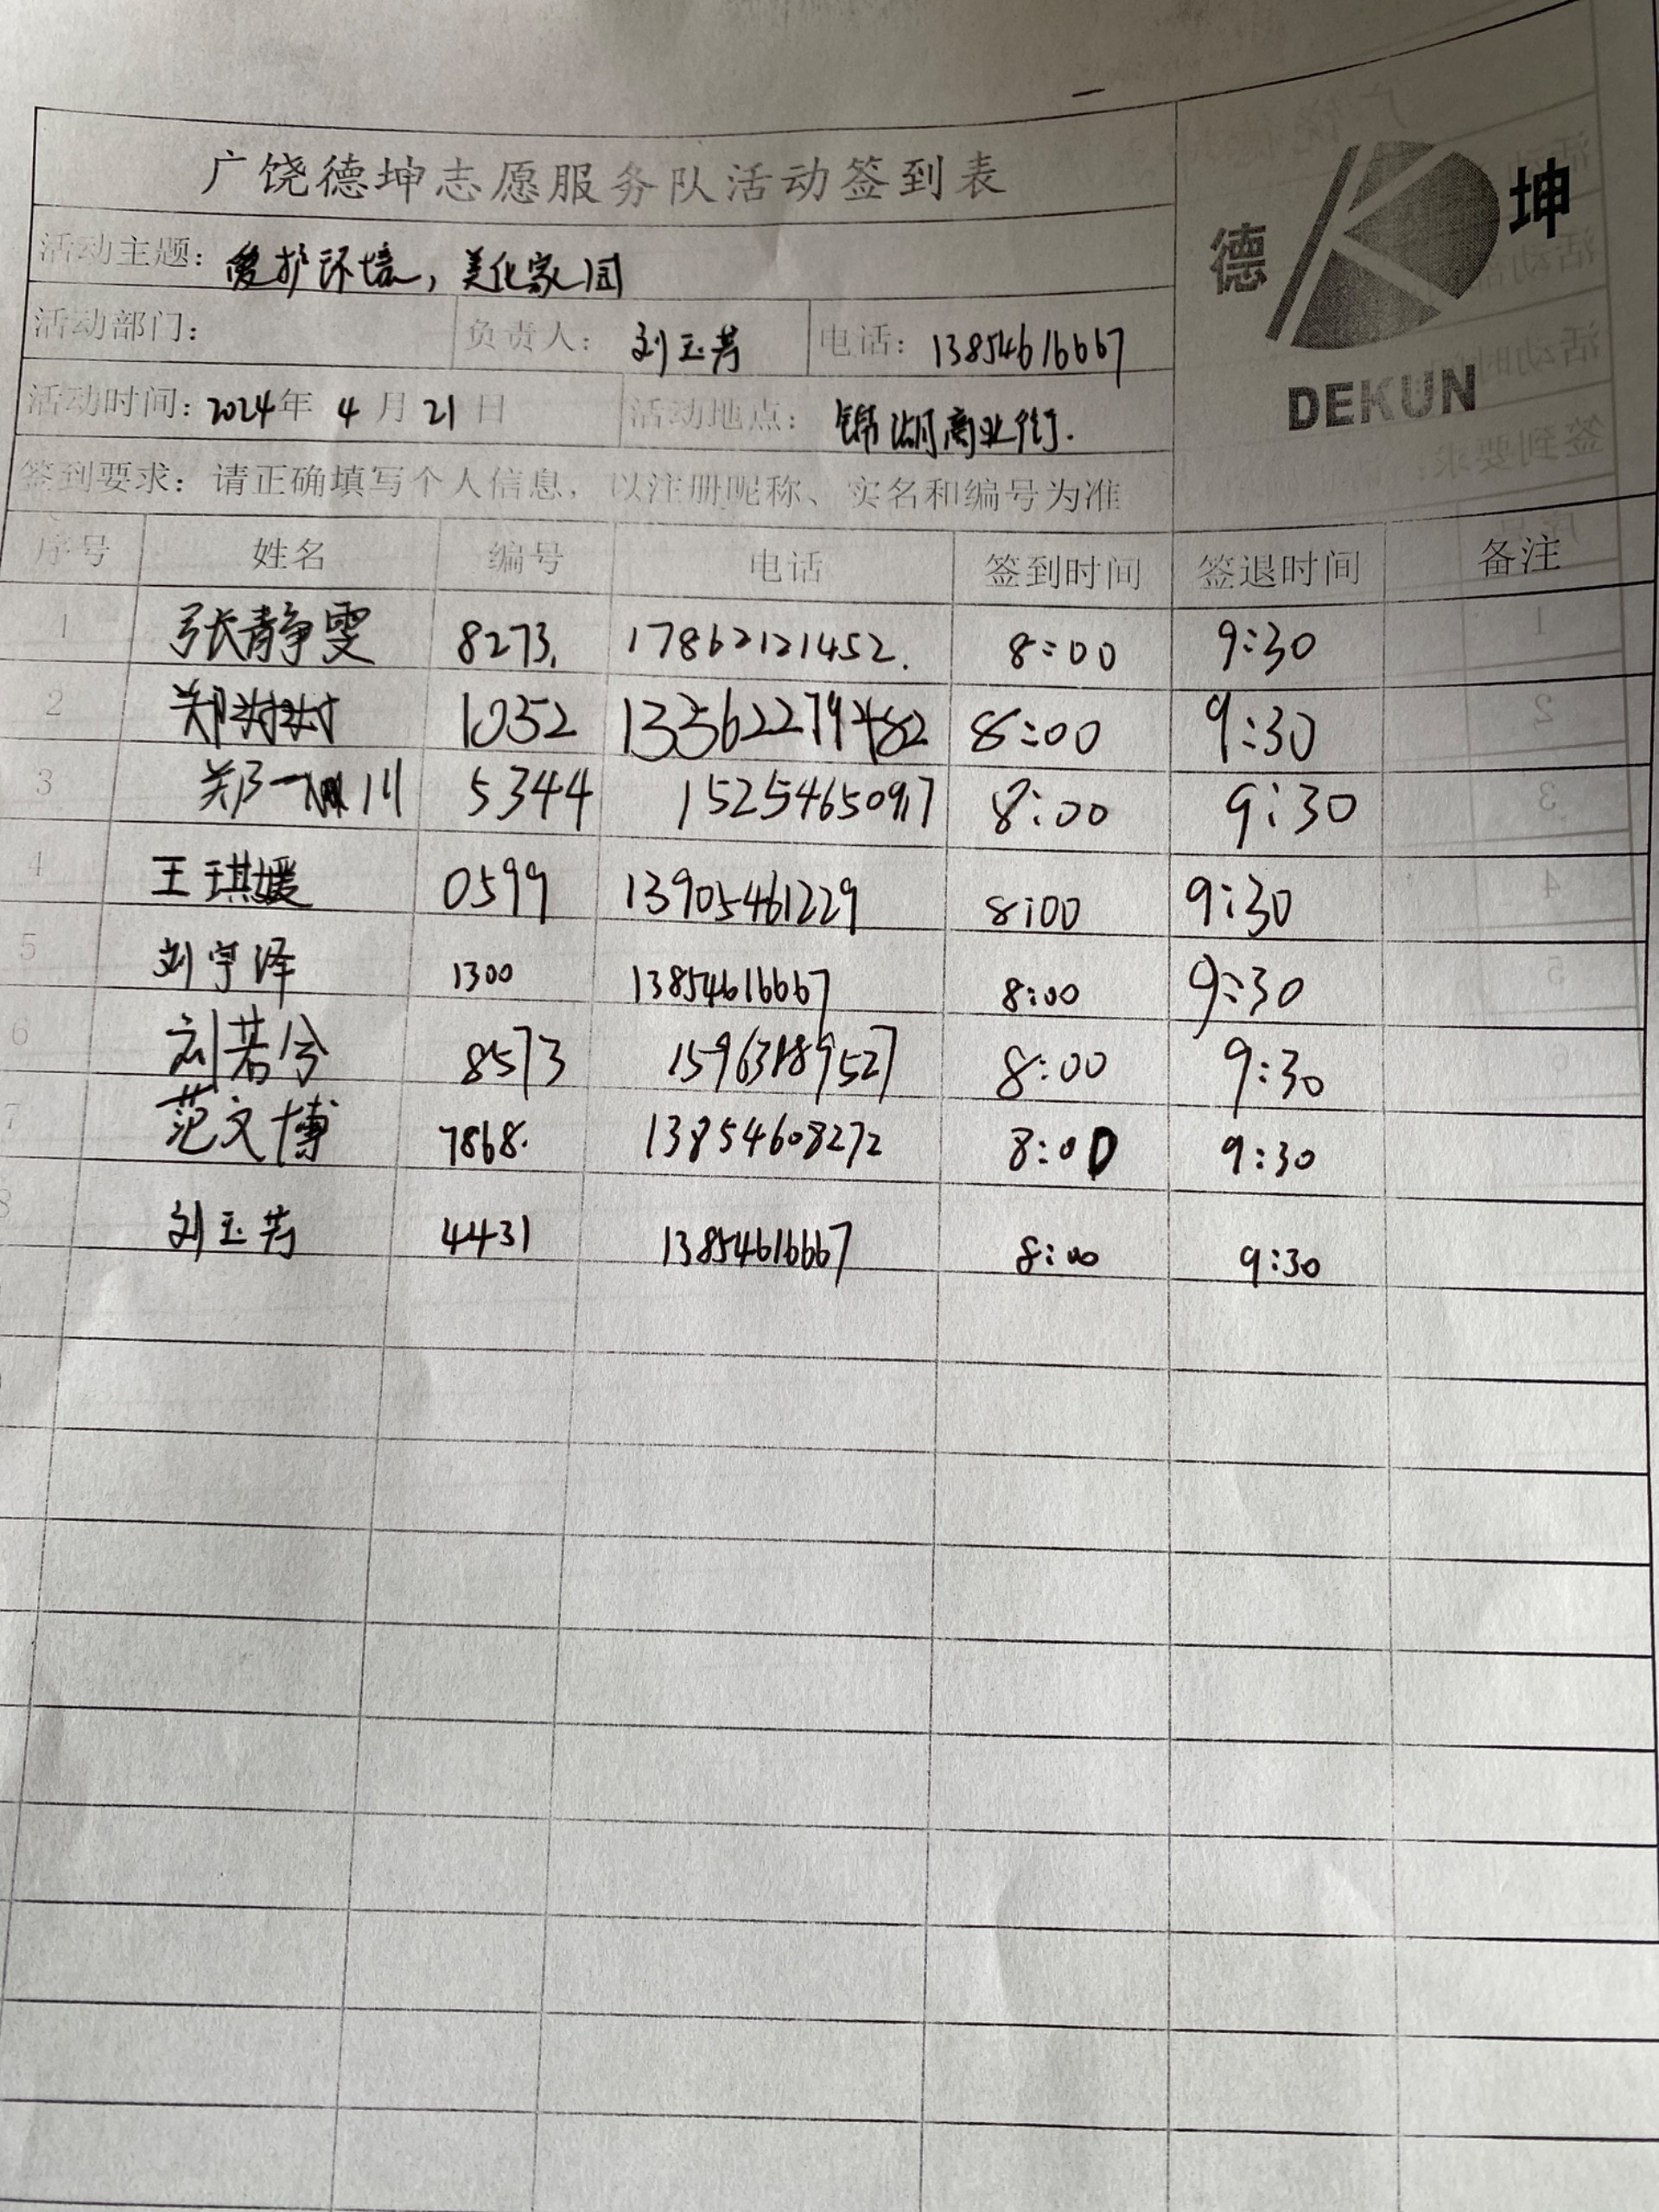 广饶德坤志愿服务队活动签到表
德 坤
DEKUN
活动主题: 爱护环境,美化家园
活动部门: 负责人: 刘玉芳 电话: 13854616667
活动时间: 2024年 4 月 21 日 活动地点: 锦湖商业街.
签到要求: 请正确填写个人信息, 以注册昵称、实名和编号为准
序号 姓名 编号 电话 签到时间 签退时间 备注
1 张静雯 8273. 17862121452. 8:00 9:30
2 郑 1032 13562279482 8:00 9:30
3 郑一川 5344 15254650917 8:00 9:30
4 王琪媛 0599 13905461229 8:00 9:30
5 刘宇泽 1300 13854616667 8:00 9:30
6 刘若兮 8573 15963189527 8:00 9:30
7 范文博 7868. 13854608272 8:00 9:30
8 刘玉芳 4431 13854616667 8:00 9:30